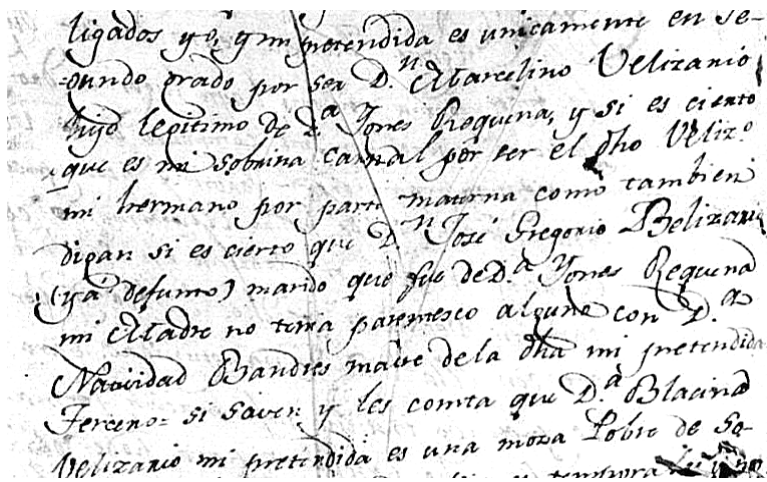 ligados yo, y mi pretendida es unicamente en se-
=gundo grado por ser D.n Marcelino Velizario
hijo legitimo de D.a Ynes Requena, y si es cierto
que es mi sobrina carnal por ser el dho Veliz.o
mi hermano por parte materna como tambien
digan si es cierto que D.n José Gregorio Belizario
(ya defunto) marido que fue de D.a Ynes Requena
mi Madre no tenia parentesco alguno con D.a
Natividad Bandres madre dela dha mi pretendida
Tercero= si saven y les consta que D.a Blacina
Velizario mi pretendida es una moza Pobre de so-